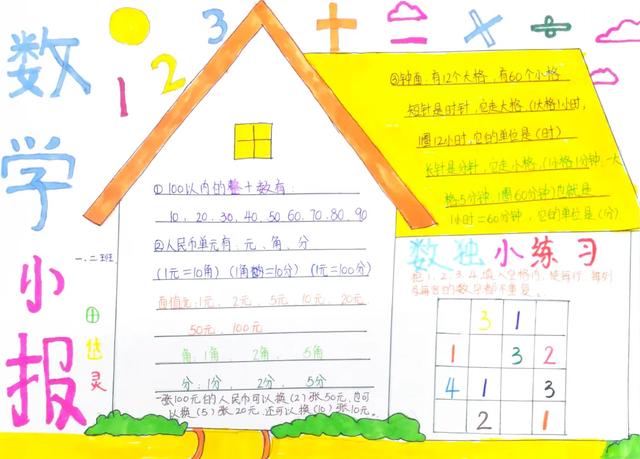 数学小报
1 2 3 + = × ÷
一.二班
田岱灵
①100以内的整十数有:
10、20、30、40、50、60、70、80、90
②人民币单元有:元、角、分
(1元=10角) (1角=10分) (1元=100分)
面值是:1元、2元、5元、10元、20元
50元、100元
角:1角、2角、5角
分:1分、2分、5分
一张100元的人民币可以换(2)张50元,也可
以换(5)张20元,还可以换(10)张10元。
③钟面:有12个大格,有60个小格
短针是时针,它走大格,(1大格)1小时,
1圈12小时,它的单位是(时)
长针是分针,它走小格,(1小格)1分钟,一大
格5分钟,1圈60分钟)也就是
1小时=60分钟,它的单位是(分)
数独小练习
把1、2、3、4填入空格内,使每行、每列
的数字都不重复。
3 1
1 3 2
4 1 3
2 1